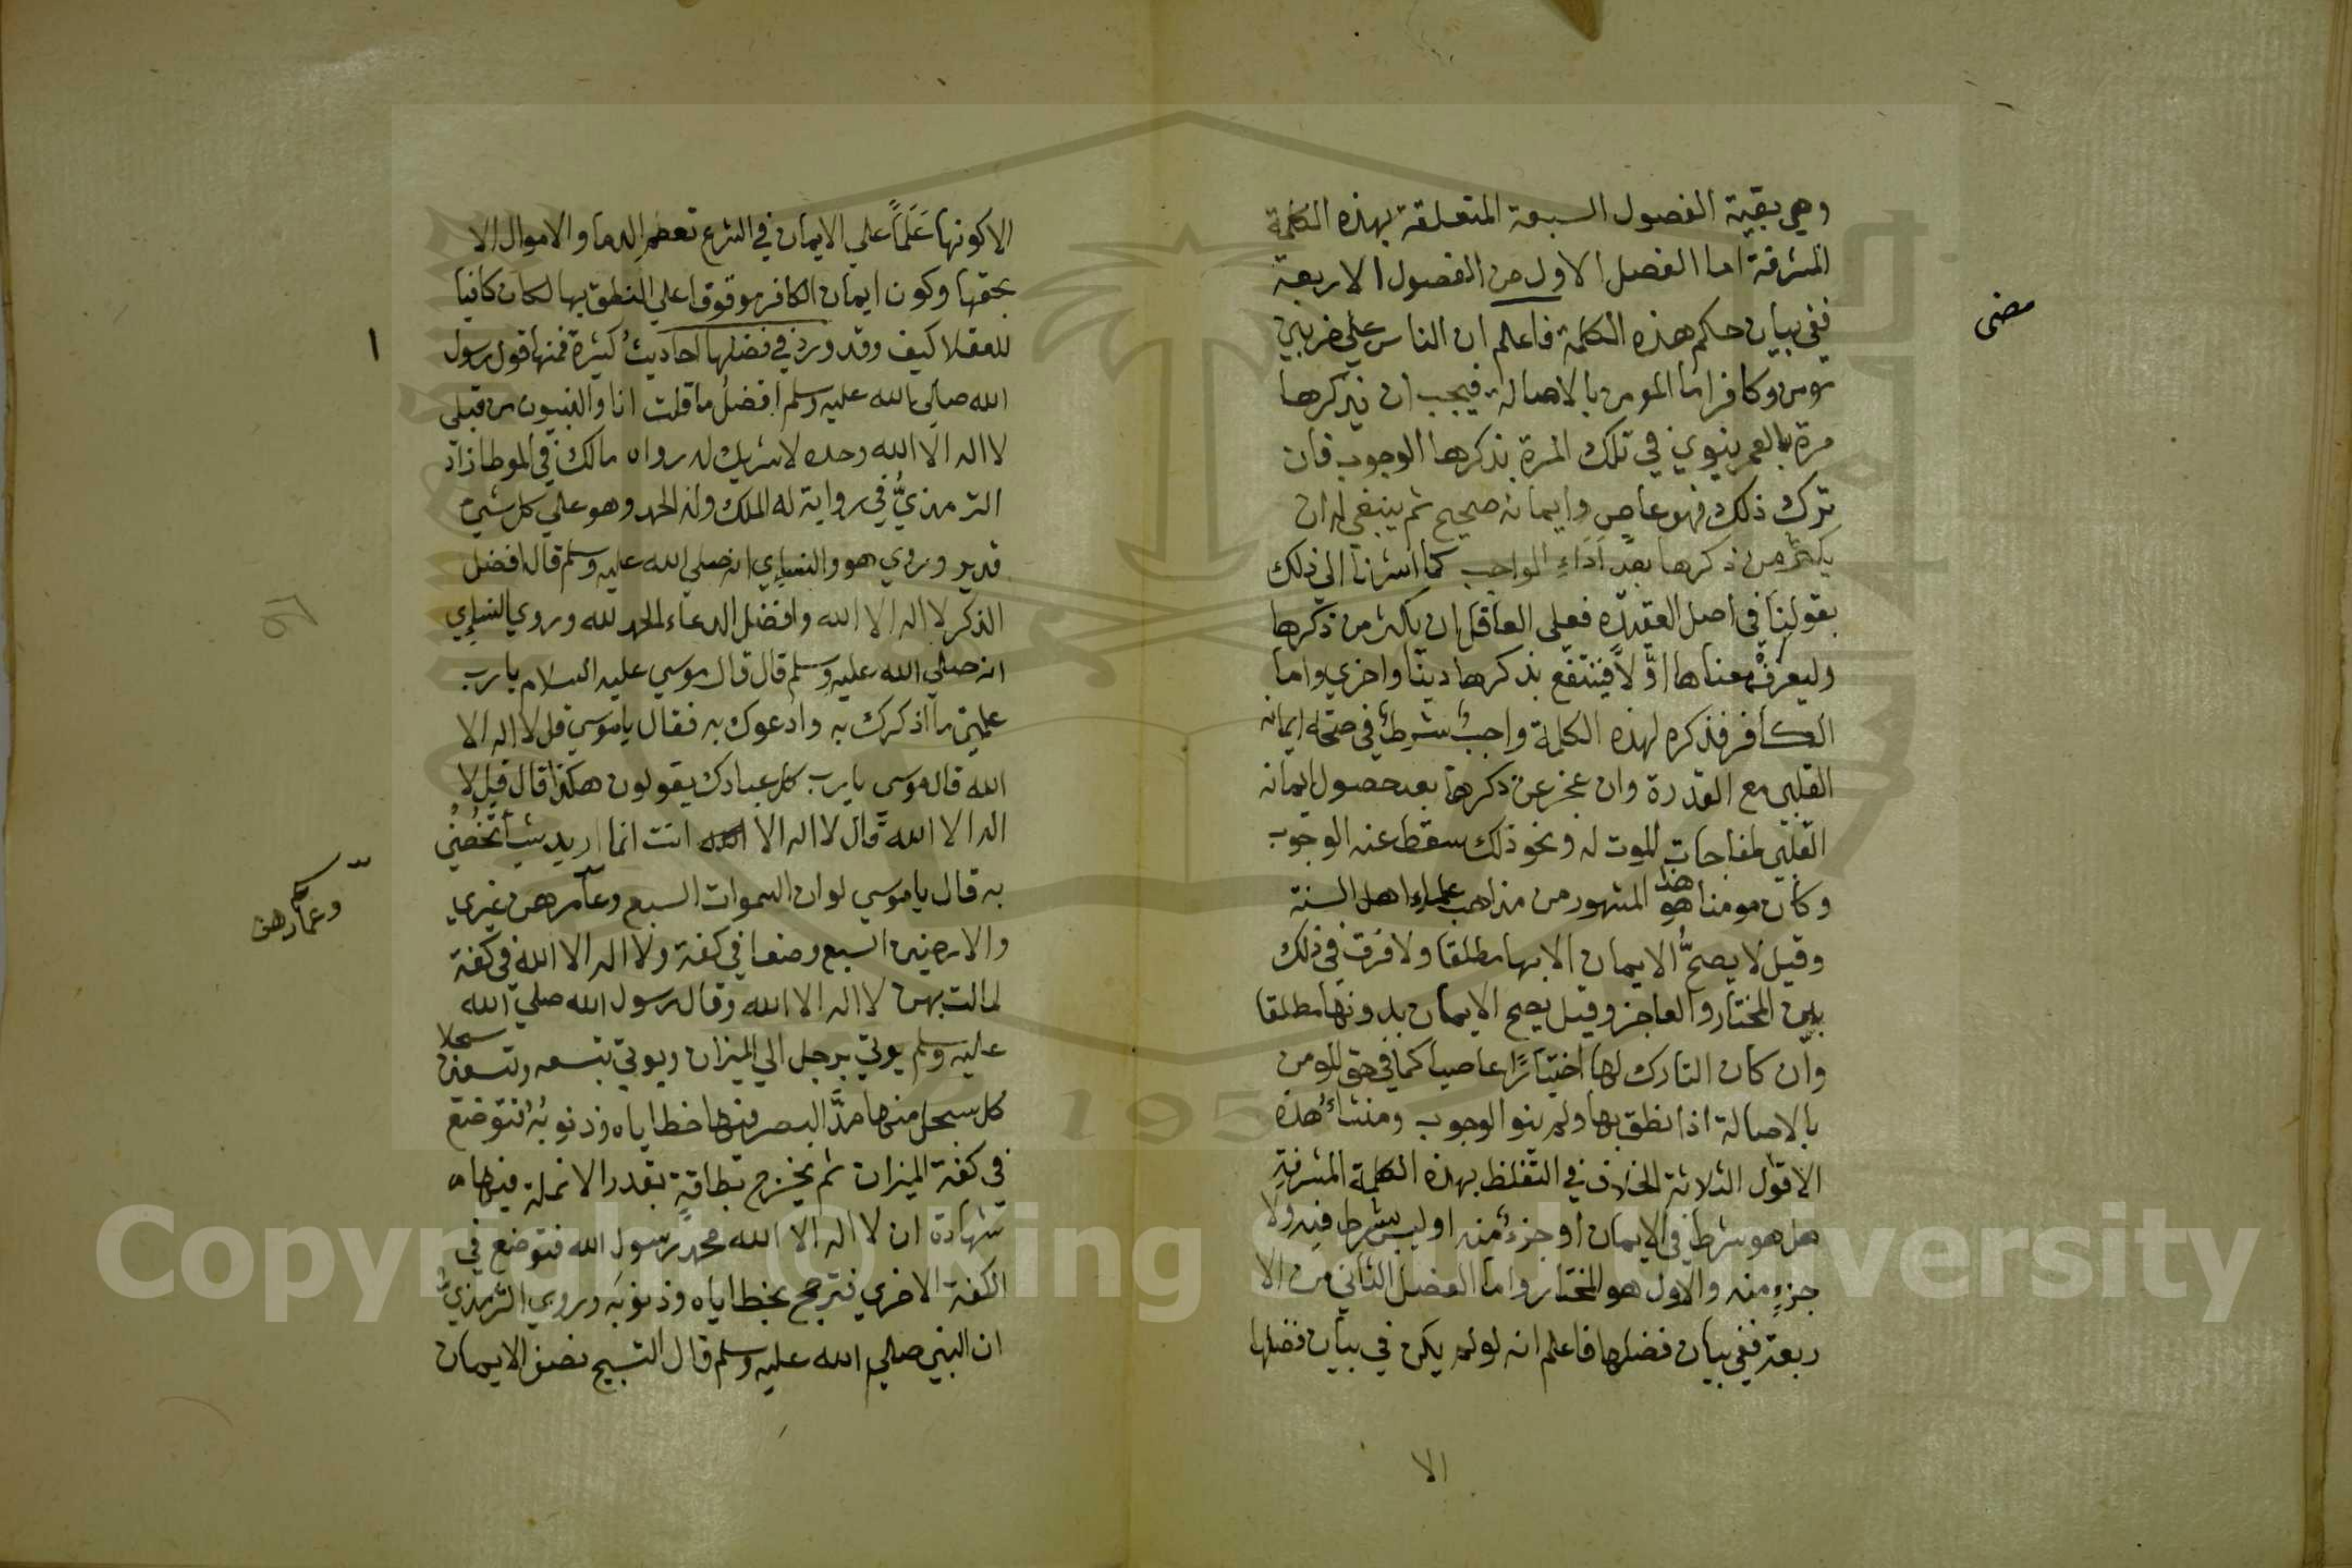 وهي بقية الفصول السبعة المتعلقة بهذه الكلمة
المشرفة اما الفصل الاول من الفصول الاربعة
ففي بيان حكم هذه الكلمة فاعلم ان الناس علي ضربين
مومن وكافر اما المومن بالاصالة فيجب ان يذكرها
مرة بالعمر ينوي في تلك المرة بذكرها الوجوب فان
ترك ذلك فهو عاصٍ وايمانه صحيح ثم ينبغي له ان
يكثر من ذكرها بعد اَدَاءِ الواجب كما اشرنا الي ذلك
بقولنا في اصل العقيده فعلي العاقل ان يكثر من ذكرها
وليعرفْ معناها اوَّلاً فينتفع بذكرها دينا واخري واما
الكافر فذكره لهذه الكلمة واجبٌ شرطٌ في صحة ايمانه
القلبي مع القدرة وان عجز عن ذكرها بعد حصول ايمانه
القلبي لمفاجات الموت له ونحو ذلك سقط عنه الوجوب
وكان مومنا هذا هو المشهور من مذاهب علماء اهل السنة
وقيل لا يصحُّ الايمان الا بها مطلقا ولا فرق في ذلك
بين المختار والعاجز وقيل يصح الايمان بدونها مطلقا
وان كان التارك لها اختيارًا عاصيا كما في حق المومن
بالاصالة اذا نطق بها ولم ينو الوجوب ومنشاءُ هذه
الاقول الثلاثة الخلاف في التفلظ بهذه الكلمة المشرفةِ
هل هو شرط في الايمان او جزءٌ منه او ليس بشرط فيه ولا
جزءٍ منه والاول هو المختار واما الفصل الثاني من الا
ربعة ففي بيان فضلها فاعلم انه لو لم يكن في بيان فضلها
الا
مضى
الا كونها عَلَماً علي الايمان في الشرع تعصم الدما والاموال الا
بحقها وكون ايمان الكافر موقوفا علي النطق بها لكان كافيا
للعقلا كيف وقد ورد في فضلها احاديثُ كثيرة فمنها قول رسول
الله صلي الله عليه وسلم افضل ما قلت انا والنبيون من قبلي
لا اله الا الله وحده لا شريك له رواه مالك في الموطا زاد
الترمذيُّ في رواية له الملك وله الحمد وهو علي كل شيء
قدير وروي هو والنسايي انه صلي الله عليه وسلم قال افضل
الذكر لا اله الا الله وافضل الدعاء الحمد لله وروي النسايي
انه صلي الله عليه وسلم قال قال موسي عليه السلام يا رب
علمني ما اذكرك به وادعوك به فقال يا موسي قل لا اله الا
الله قال موسي يا رب كل عبادك يقولون هكذا قال قل لا
اله الا الله قال لا اله الا انت انما اريد شيأ تخصني
به قال يا موسي لو ان السموات السبع وعامرهن غيري
والارضين السبع وضعا في كفة ولا اله الا الله في كفة
لمالت بهن لا اله الا الله وقال رسول الله صلي الله
عليه وسلم يوتي برجل الي الميزان ويوتي بتسعه وتسعين سجلا
كل سجل منها مدَّ البصر فيها خطاياه وذنوبُهُ فتوضع
في كفة الميزان ثم يخرج بطاقةٍ بقدر الانملة فيها
شهادة ان لا اله الا الله محمد رسول الله فتوضع في
الكفة الاخري فترجح بخطاياه وذنوبه وروي الترمذيُّ
ان النبي صلي الله عليه وسلم قال التسبيح نصف الايمان
١
Copyright © King Saud University
195